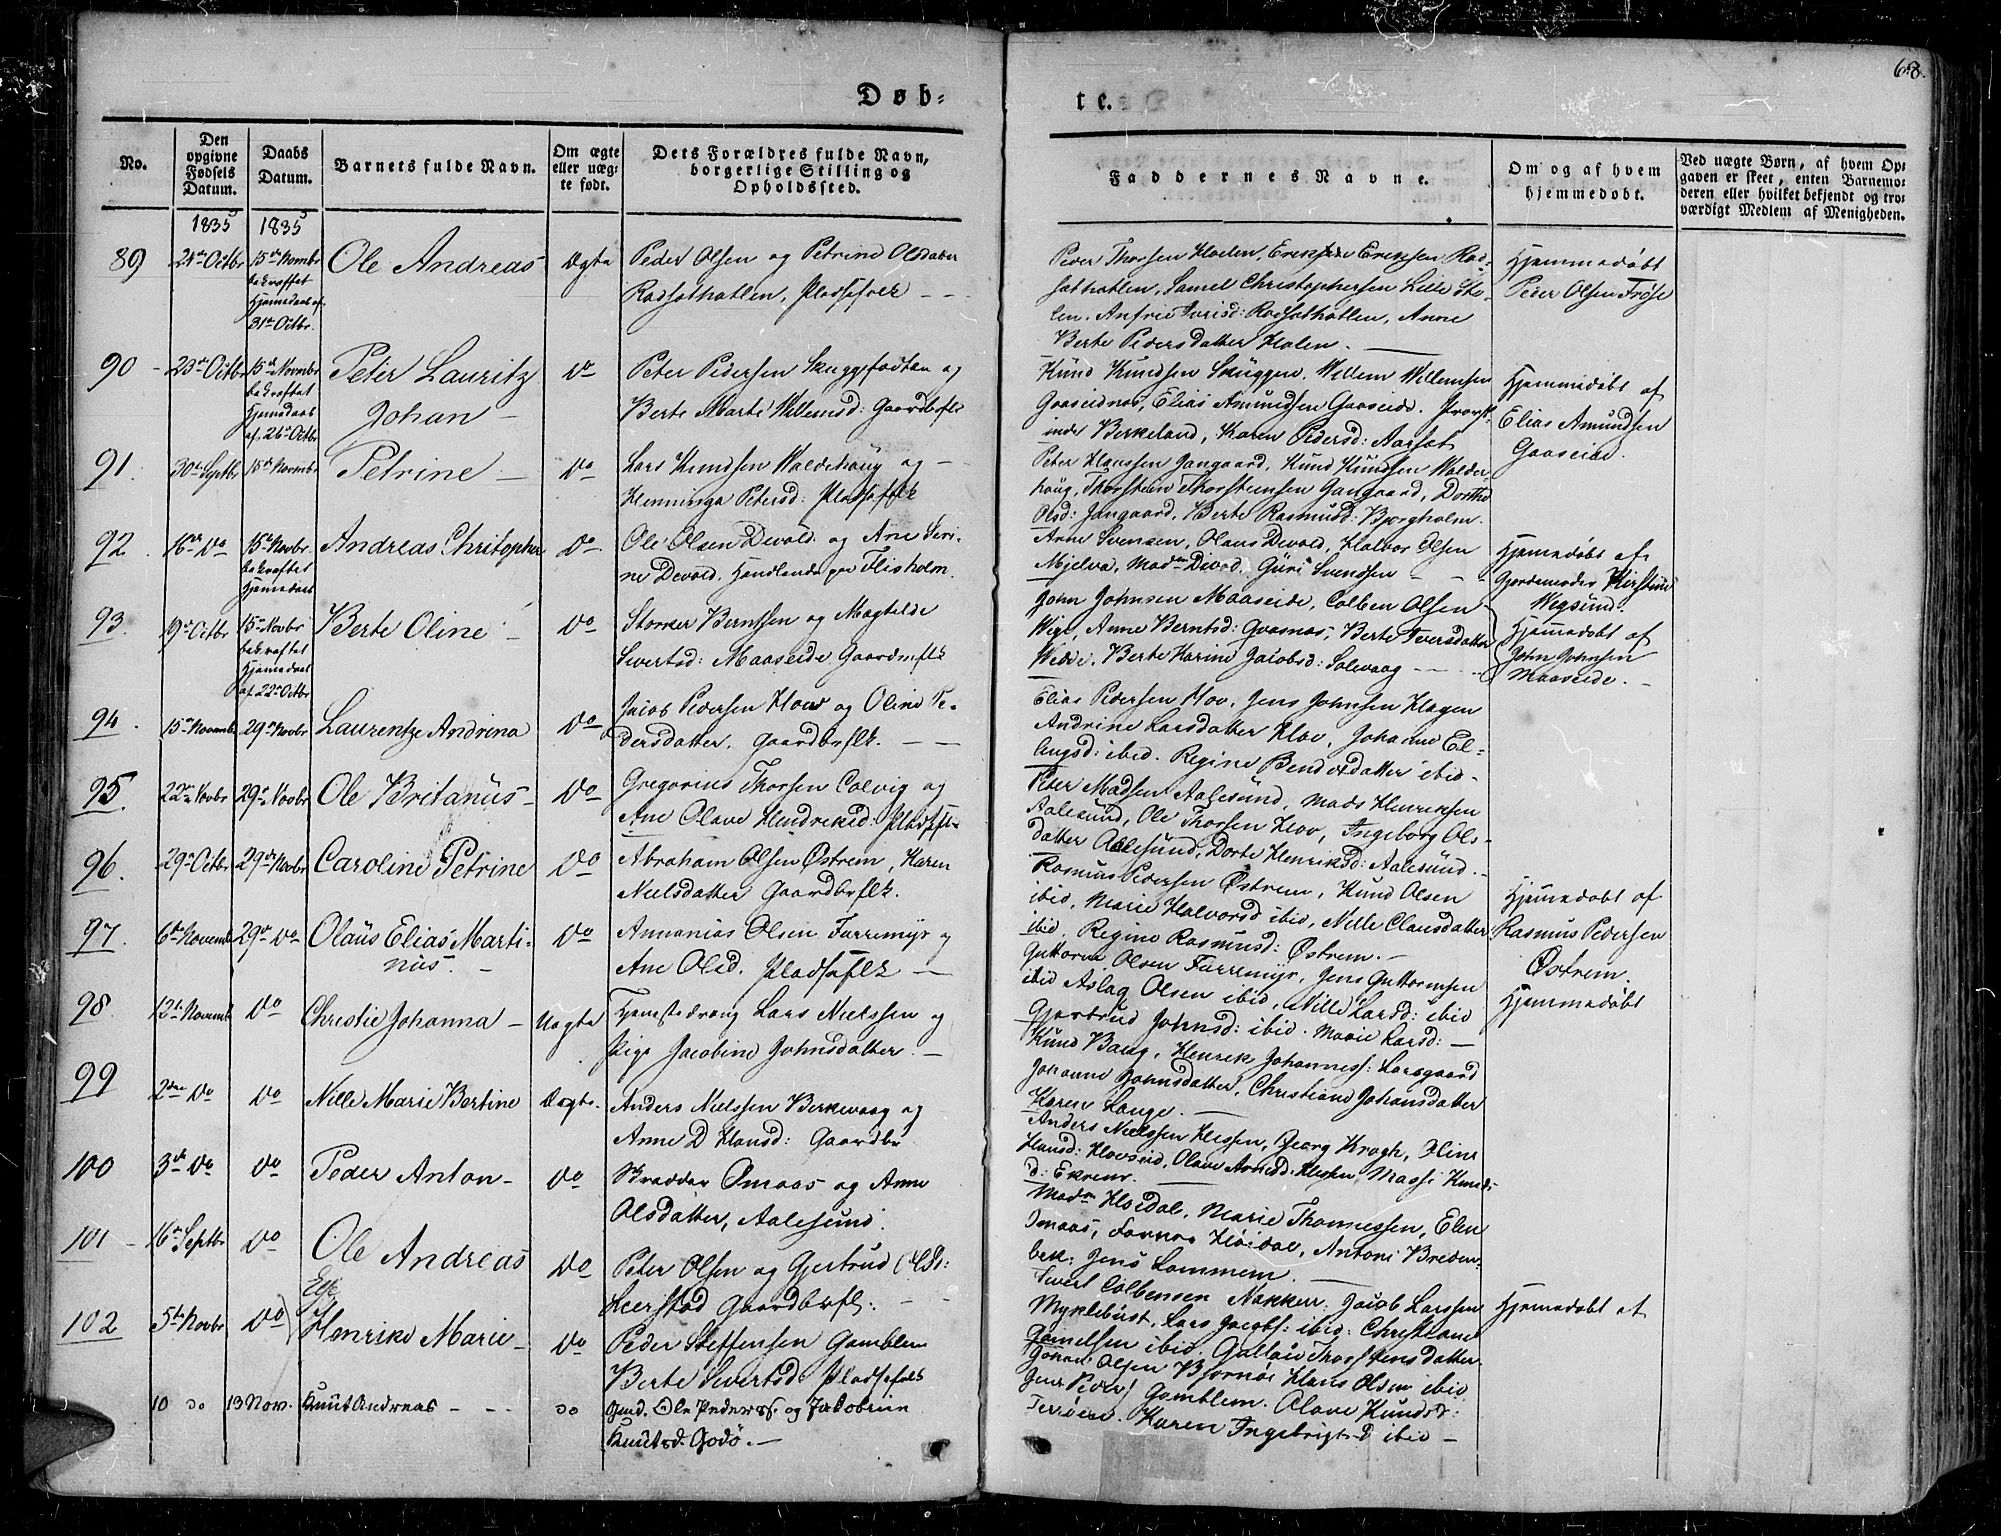 68.
Døb-
te.
No.
Den opgivne Fødsels Datum.
Daabs Datum.
Barnets fulde Navn.
Om ægte eller uægte født.
Dets Forældres fulde Navn, borgerlige Stilling og Opholdssted.
Faddernes Navne.
Om og af hvem hjemmedøbt.
Ved uægte Børn, af hvem Opgaven er skeet, enten Barnemoderen eller hvilket bekjendt og troværdigt Medlem af Menigheden.
1835 1835
89 Octbr 15de Novmbr bekræftet Hjemedaab af 31te Octbr. Ole Andreas Ægte Peder Olsen og Petrine Olsdatter
Pladsefolk
Peder Thorsen
Samel Christophersen Lille
Anne
Berte Pedersdatter Holen.
Hjemmedøbt
Peder Olsen
90 23de Octbr 15de Novmbr bekræftet Hjemedaab af 26de Octbr Peter Lauritz Johan Do Peter Pedersen og
Berte Marte Willemsd: Gaardbrflk
Knud Knudsen Skuggen. Willem Willemsen
Gaaseidnes, Elias Amundsen Gaaseide.
Berkeland, Karen Pedersd: Aarsæt
Hjemmedøbt af
Elias Amundsen
Gaaseide.
91. 30te Septbr 15de Novmbr Petrine Do Lars Knudsen Walderhoug og
Henninga Petersd: Pladsefolk
Peter Hanssen Gangaard, Knud Knudsen Walder-
houg, Thorstein Thorsteinsen Gangaard, Dorthe
Olsd: Gangaard, Berte Rasmusd: Bjørgholm.
92. 16de Do 15de Novbr. bekræftet Hjemedaab Andreas Chritopher Do Ole Olsen Devold og Ane Seri-
ne Devold, Handlende paa Flisholm.
Arne Svensen, Olaus Devold, Halvor Olsen
Mjelva, Madm Divold, Guri Svendsen
Hjemedøbt af
Gjordemoder Kirstine
Wegsund.
93. 19de Octbr 15de Novbr bekræftet Hjemedaab af 22de Octbr Berte Oline Do Storker Berntsen og Magtelde
Sivertsd: Maaseide Gaardmflk
John Johnsen Maaseide, Colben Olsen
Anne Berntsd: Berte Iversdatter
Berte Karine Jacobsd: Solevaag
Hjemmedøbt af
John Johnsen
Maaseide.
94. 15de Novemb 29de Novbr Laurentze Andrina Do Jacob Pedersen Hov og Oline Pe-
dersdatter, Gaardbrflk.
Elias Pedersen Hov, Jens Johnsen Hagen
Andrine Larsdatter Hov, Johanne El-
lingsd: ibid. Regine Bendixdatter ibid.
95. 22de Novbr 29de Novbr Ole Britanus Do Gregorius Thorsen Colvig og
Ane Olave Hendriksd: Pladsflk
Peter Madsen Aalesund, Mads Henriksen
Aalesund, Ole Thorsen Hov, Ingeborg Ols-
datter Aalesund, Dorte Henriksd: Aalesund.
96. 29de Octbr 29de Novbr Caroline Petrine Do Abraham Olsen Østrem, Karen
Nielsdatter Gaardbrflk.
Rasmus Pedersen Østrem, Knud Olsen
ibid, Marie Halvorsd ibid, Nille Clausdatter
ibid. Regine Rasmusd: Østrem.
Hjemedøbt af
Rasmus Pedersen
Østrem.
97. 6te Novemb 29de Do Olaus Elias Marti-
nus. Do Annanias Olsen Furremyr og
Ane Olsd. Pladsefolk
Guttorm Olsen Furremyr, Jens Guttormsen
ibid Aslag Olsen ibid, Nille Larsd: ibid
Gjertrud Johnsd: ibid. Marie Larsd:
Hjemmedøbt
98. 12te Novemb Do Christie Johanna Uægte Tjenestedreng Lars Nielssen og
Pige Jacobine Johnsdatter.
Knud Bang, Henrik Johanness: Larsgaard
Johanne Johnsdatter, Christiane Johansdatter
Karen Lange.
99 2den Do Do Nille Marie Bertine Ægte. Anders Nielssen Berkevaag og
Anne D Hansd: Gaardbr
Anders Nielssen Hessen, Georg Krogh,
Hansd: Olave Arnesd: Hessen, Massi Knuds
d:
100 3de Do Do Peder Anton Do Brodder Smaas og Anne
Olsdatter, Aalesund.
Madm Høidal, Marie Thomessen, Elen
Smaas, Høidal, Antoni Breden-
bek. Jens Lommem.
101 16de Septbr Do Ole Andreas Do Peter Olsen og Gjertrud Olsd:
Leerstad Gaardbrflk:
Sivert Colbensen Nakken, Jacob Larssen
Myklebust, Lars Jacobs: ibid: Christiane
Samelsen ibid. Thorstensdatter
102 5te Novbr Do Else
Henrike Marie Do Peder Steffensen Gamblem
Berte Sivertsd Pladsefolk
Johan Olsen Bjørnøe Hans Olsen ibid
Jens Peders Gamblem. Olave Knudsd:
Terrøen. Karen Ingebrigtsd ibid
Hjemedøbt af
10 do 13 Nov. Knut Andreas do Gmd. Ole Peders. og Jakobine
Knutsd. Godø.